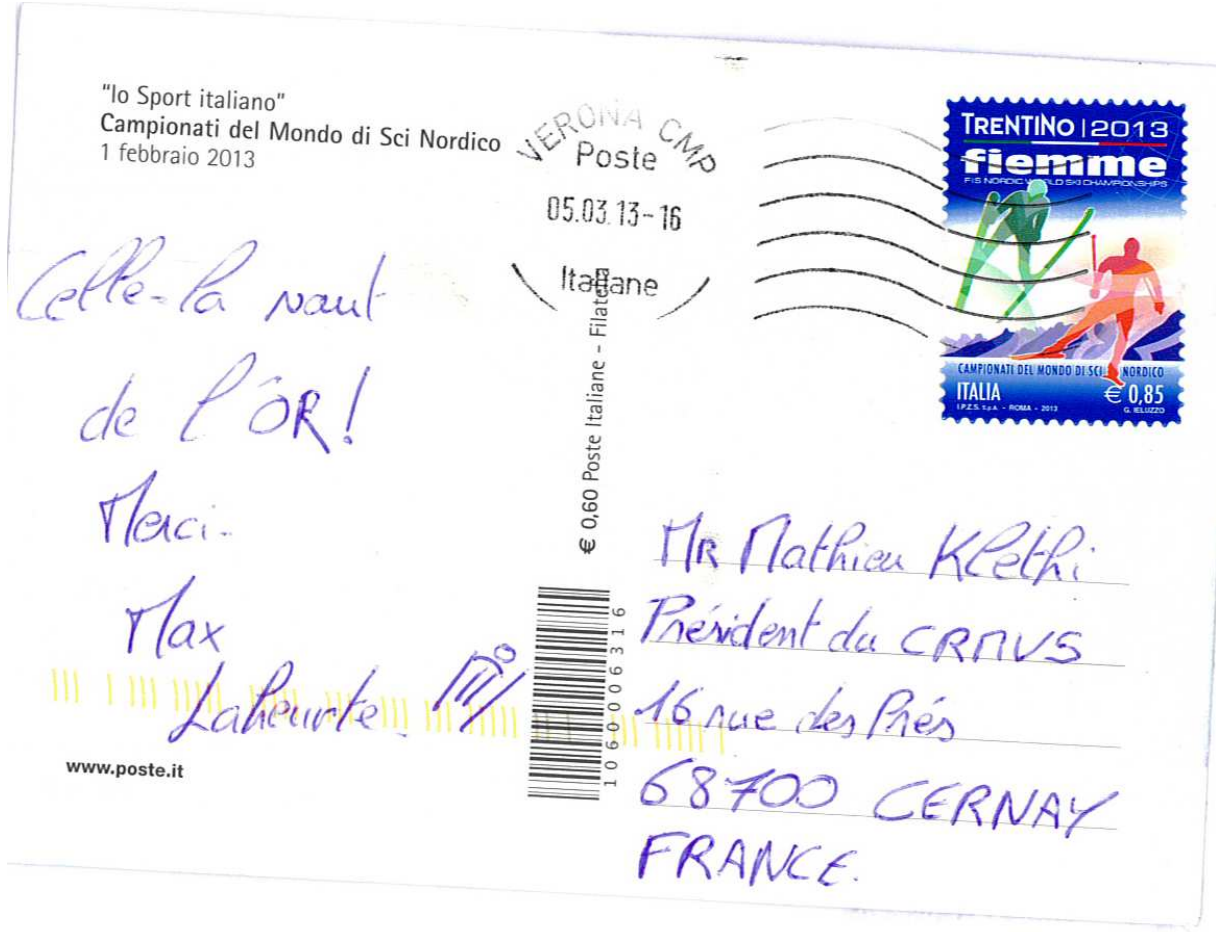 "lo Sport italiano"
Campionati del Mondo di Sci Nordico
1 febbraio 2013
VERONA CMP
Poste
05.03.13-16
Italiane
TRENTINO | 2013
fiemme
FIS NORDIC WORLD SKI CHAMPIONSHIPS
CAMPIONATI DEL MONDO DI SCI NORDICO
ITALIA
€ 0,85
I.P.Z.S. S.p.A. - ROMA - 2013
G. IELUZZO
Celle-là vaut
de l'ÔR!
Merci.
Max
Laheurte.
www.poste.it
€ 0,60 Poste Italiane - Filatelia
1060006316
Mr Mathieu Klethi
Président du CRMVS
16 rue des Prés
68700 CERNAY
FRANCE.